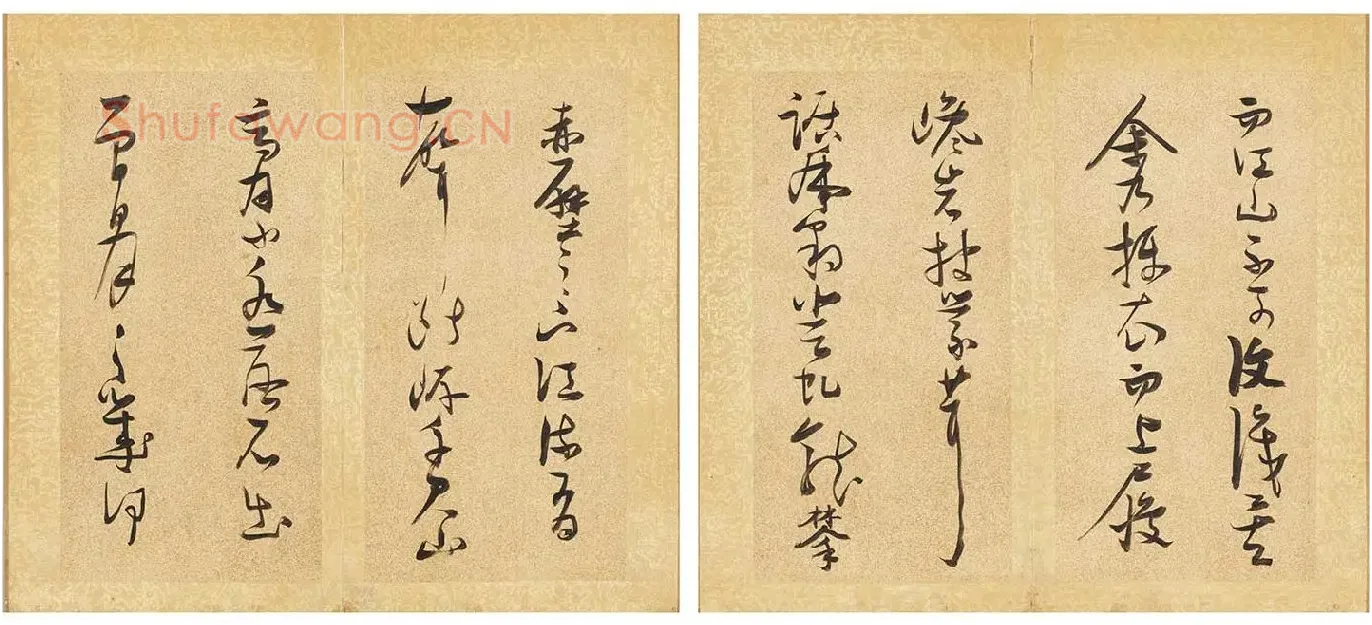 赤壁之下江流有
聲斷岸千尺山
高月小水落石出
曾日月之幾何
而江山不可復識矣
余乃攝衣而上履
巉岩披蒙茸
踞虎豹登虬龍攀
Shufawang.CN